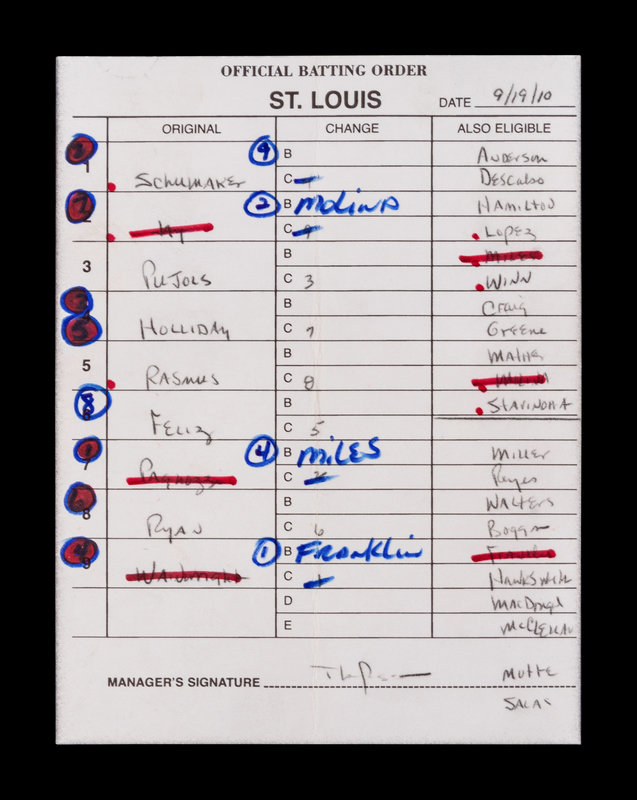 OFFICIAL BATTING ORDER
ST. LOUIS DATE 9/19/10
ORIGINAL CHANGE ALSO ELIGIBLE
9 B ANDERSON
1 SCHUMAKER C DESCALSO
2 B MOLINA HAMILTON
C LOPEZ
B MILES
3 PUJOLS C 3 WINN
B CRAIG
HOLLIDAY C 7 GREENE
B MATHER
5 RASMUS C 8
8 B STAVINOHA
FELIZ C 5
4 B MILES MILLER
7 PAGNOZZI C REYES
B WALTERS
8 RYAN C 6 BOGGS
1 B FRANKLIN
9 WAINWRIGHT C 1 HAWKSWORTH
D MACDOUGAL
E McCLELLAN
MANAGER'S SIGNATURE MOTTE
SALAS